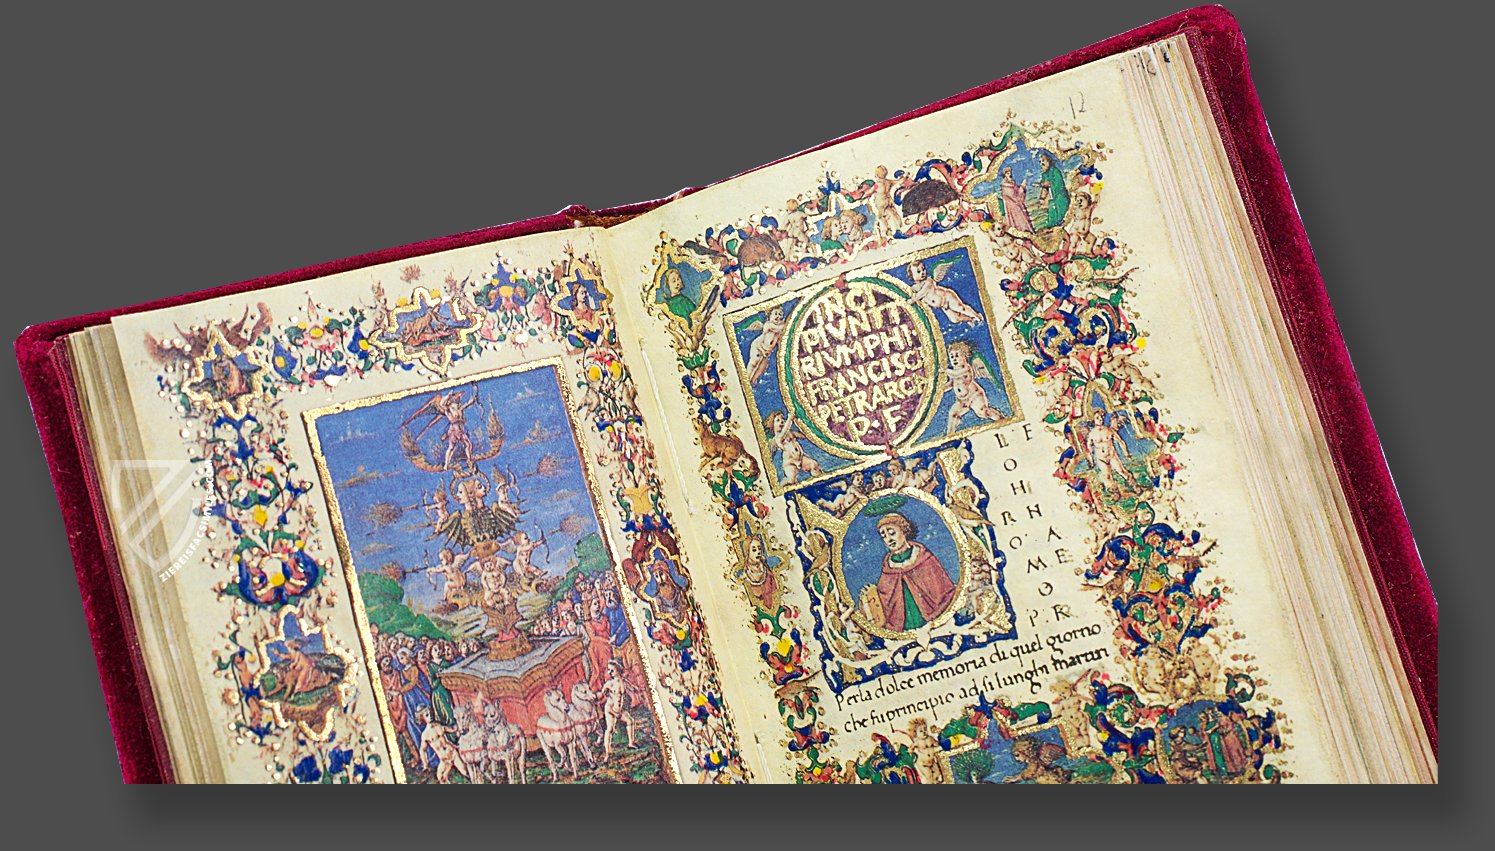 12
INCI
PIVNT T
RIVMPHI
FRANCISCI
PETRARCA
P·F
EL
TEMPORHENHOVACHAMEISO
Perla dolce memoria di quel giorno
che fu principio ad si lunghi martiri
ZIEREISFACSIMILES.COM